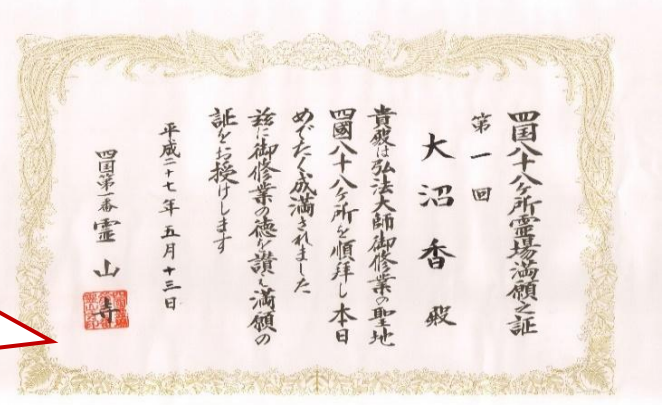 四国八十八ヶ所霊場満願之証
第一回
大沼香殿
貴殿は弘法大師御修業の聖地
四國八十八ヶ所を順拝し本日
めでたく成満されました
茲に御修業の徳を讃え満願の
証をお授けします
平成二十七年五月十三日
四国第一番霊山寺